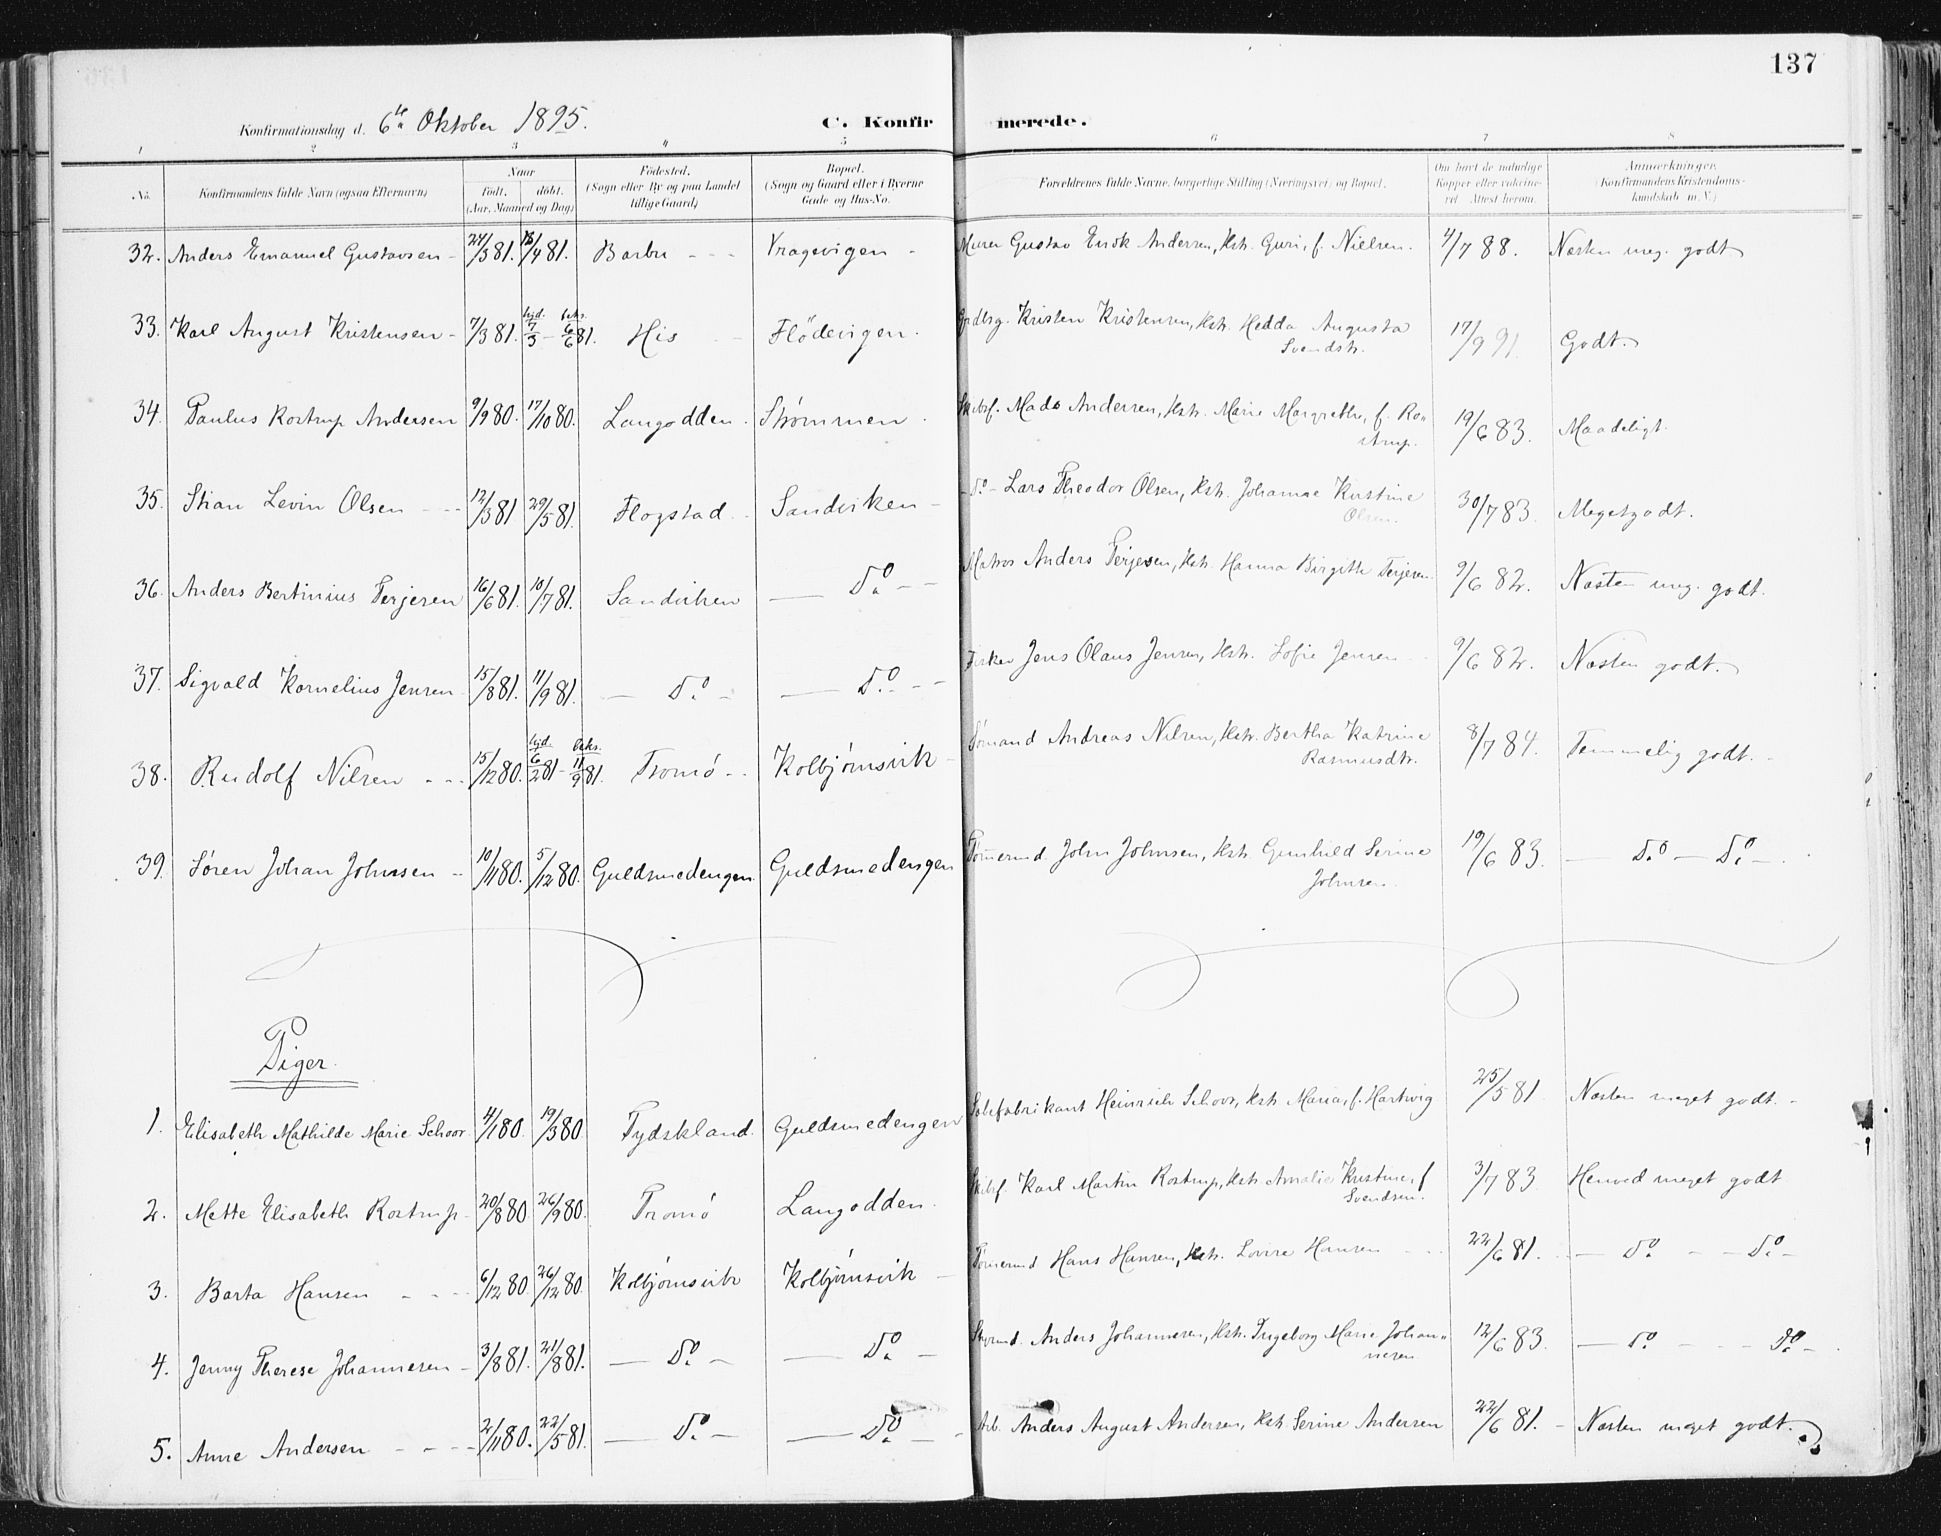 137
Konfirmationsdag d. 6te Oktober 1895.
C. Konfirmerede.
1 2 3 4 5 6 7 8
No. Konfirmandens fulde Navn (ogsaa Efternavn) Naar født. døbt. (Aar, Maaned og Dag) Fødested. (Sogn eller By og paa Landet tillige Gaard) Bopæl. (Sogn og Gaard eller i Byerne Gade og Hus-No. Forældrenes fulde Navne, borgerlige Stilling (Næringsvei) og Bopæl. Om havt de naturlige Kopper eller vakcineret. Attest herom. Anmærkninger. (Konfirmandens Kristendomskundskab m. V.)
32. Anders Emanuel Gustavsen 24/3 81. /4 81. Barbu Vragevigen Murer Gustav Enok Andersen, Hst. Guri, f. Nielsen. 4/7 88. Næsten meg. godt
33. Karl August Kristensen 7/3 81. hjd. 7/3 - bek. 6/6 81. His Flödevigen. Kristen Kristensen, Hst. Hedda Augusta Svendsdtr. 17/9 91. Godt.
34. Paulus Rostrup Andersen 9/9 80. 17/10 80. Langodden Strømmen Skibsf. Mads Andersen, Hst. Marie Margrethe, f. Rostrup. 19/6 83. Maadeligt.
35. Stian Levin Olsen 12/3 81 29/5 81. Flogstad Sandviken - Do - Lars Theodor Olsen, Hst. Johanne Kristine Olsen. 30/7 83. Megetgodt.
36. Anders Bertinius Terjesen 16/6 81. 10/7 81. Sandviken Do Matros Anders Terjesen, Hst. Hanna Birgitte Terjesen 9/6 82. Næsten meg. godt.
37. Sigvald Kornelius Jensen 15/8 81. 11/9 81. Do Do Fisker Jens Olaus Jensen, Hst. Sofie Jensen 9/6 82. Næsten godt.
38. Rudolf Nilsen 15/12 80. hjd. 6/2 81 - beks. 11/9 81. Tromö Kolbjörnsvik Sömand Andreas Nilsen, Hst. Bertha Katrine Rasmusdtr. 8/7 84. Temmelig godt.
39. Sören Johan Johnsen 10/11 80. 5/12 80. Guldsmedengen Guldsmedengen Tömermd. John Johnsen, Hst. Gunhild Serine Johnsen. 19/6 83. Do Do
Piger.
1. Elisabeth Mathilde Marie Schoor 4/1 80. 19/3 80 Tydskland. Guldsmedengen Heinrich Schoor, Hst. Maria, f. Hartvig 25/5 81. Næsten meget godt.
2. Mette Elisabeth Rostrup 20/8 80 26/9 80. Tromö Langodden. Skibsf. Karl Martin Rostrup, Hst. Amalie Kristine, f Svendsen. 3/7 83. Henved meget godt
3. Barta Hansen 6/12 80 26/12 80. Kolbjörnsvik Kolbjörnsvik Tömermd Hans Hansen, Hst. Lovise Hansen 22/6 81. Do Do
4. Jenny Therese Johannesen 3/8 81. 21/8 81. Do Do Styrmd. Anders Johannesen, Hst. Ingeborg Marie Johannesen 12/6 83. Do Do
5. Anne Andersen 2/11 80. 22/5 81. Do Do Arb. Anders August Andersen, Hst Serine Andersen 22/6 81. Næsten meget godt.